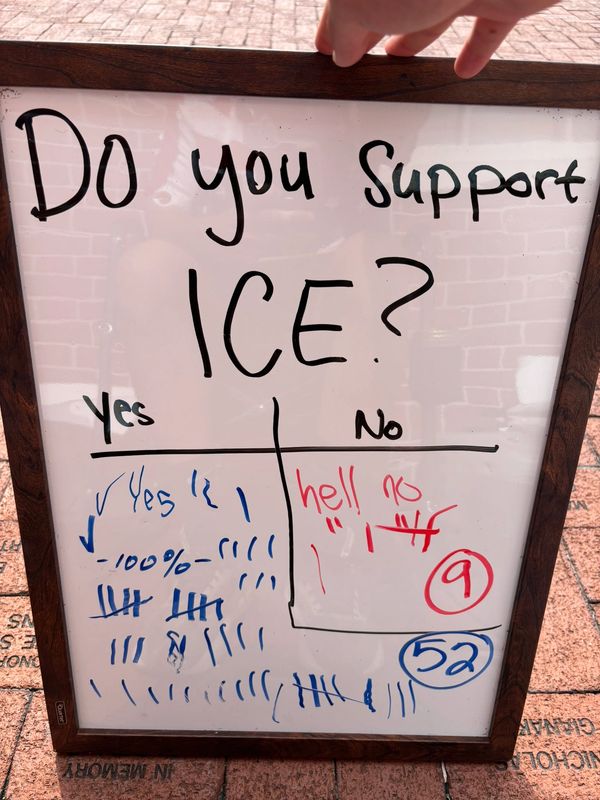 Do you Support
ICE?
Yes
No
Yes
hell no
"
-100%-
9
52
Quartet
IN MEMORY
NICHOLAS
GIANNAR